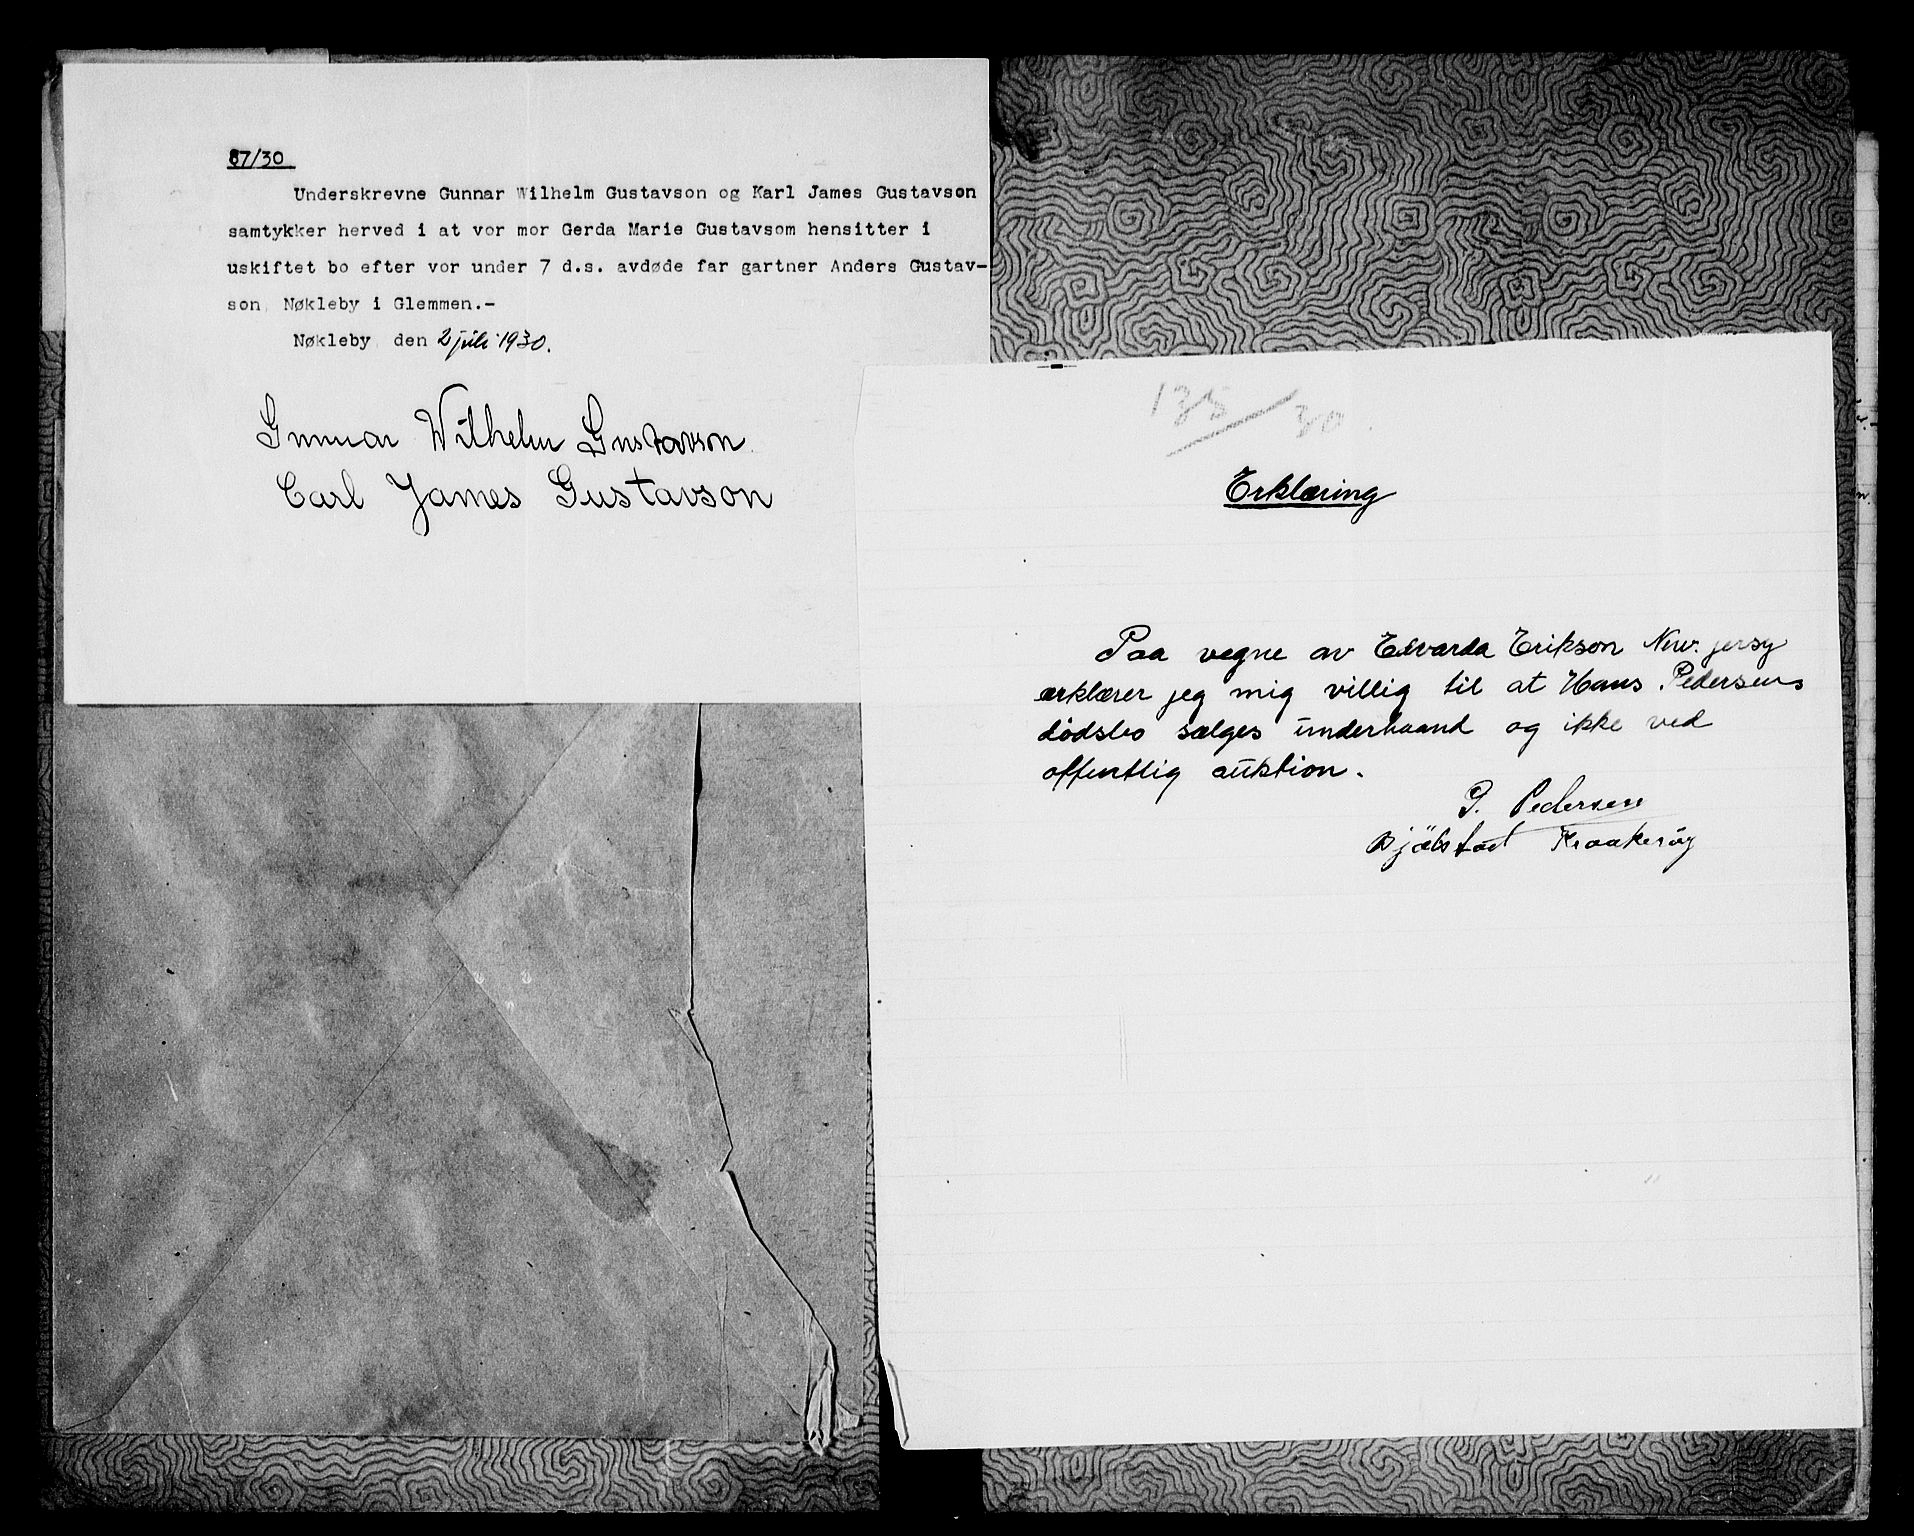 67/30
Underskrevne Gunnar Wilhelm Gustavson og Karl James Gustavson
samtykker herved i at vor mor Gerda Marie Gustavsom hensitter i
uskiftet bo efter vor under 7 d.s. avdøde far gartner Anders Gustav-
son, Nøkleby i Glemmen.-
Nøkleby den 2 juli 1930.
Gunnar Wilhelm Gustavson
Carl James Gustavson
135/30
Erklæring
Paa vegne av Edvarda Erikson New. jersy
erklærer jeg mig villig til at Hans Pedersens
dödsbo sælges underhaand og ikke ved
offentlig auktion.
P. Pedersen
Bjölstad Kraakeröy